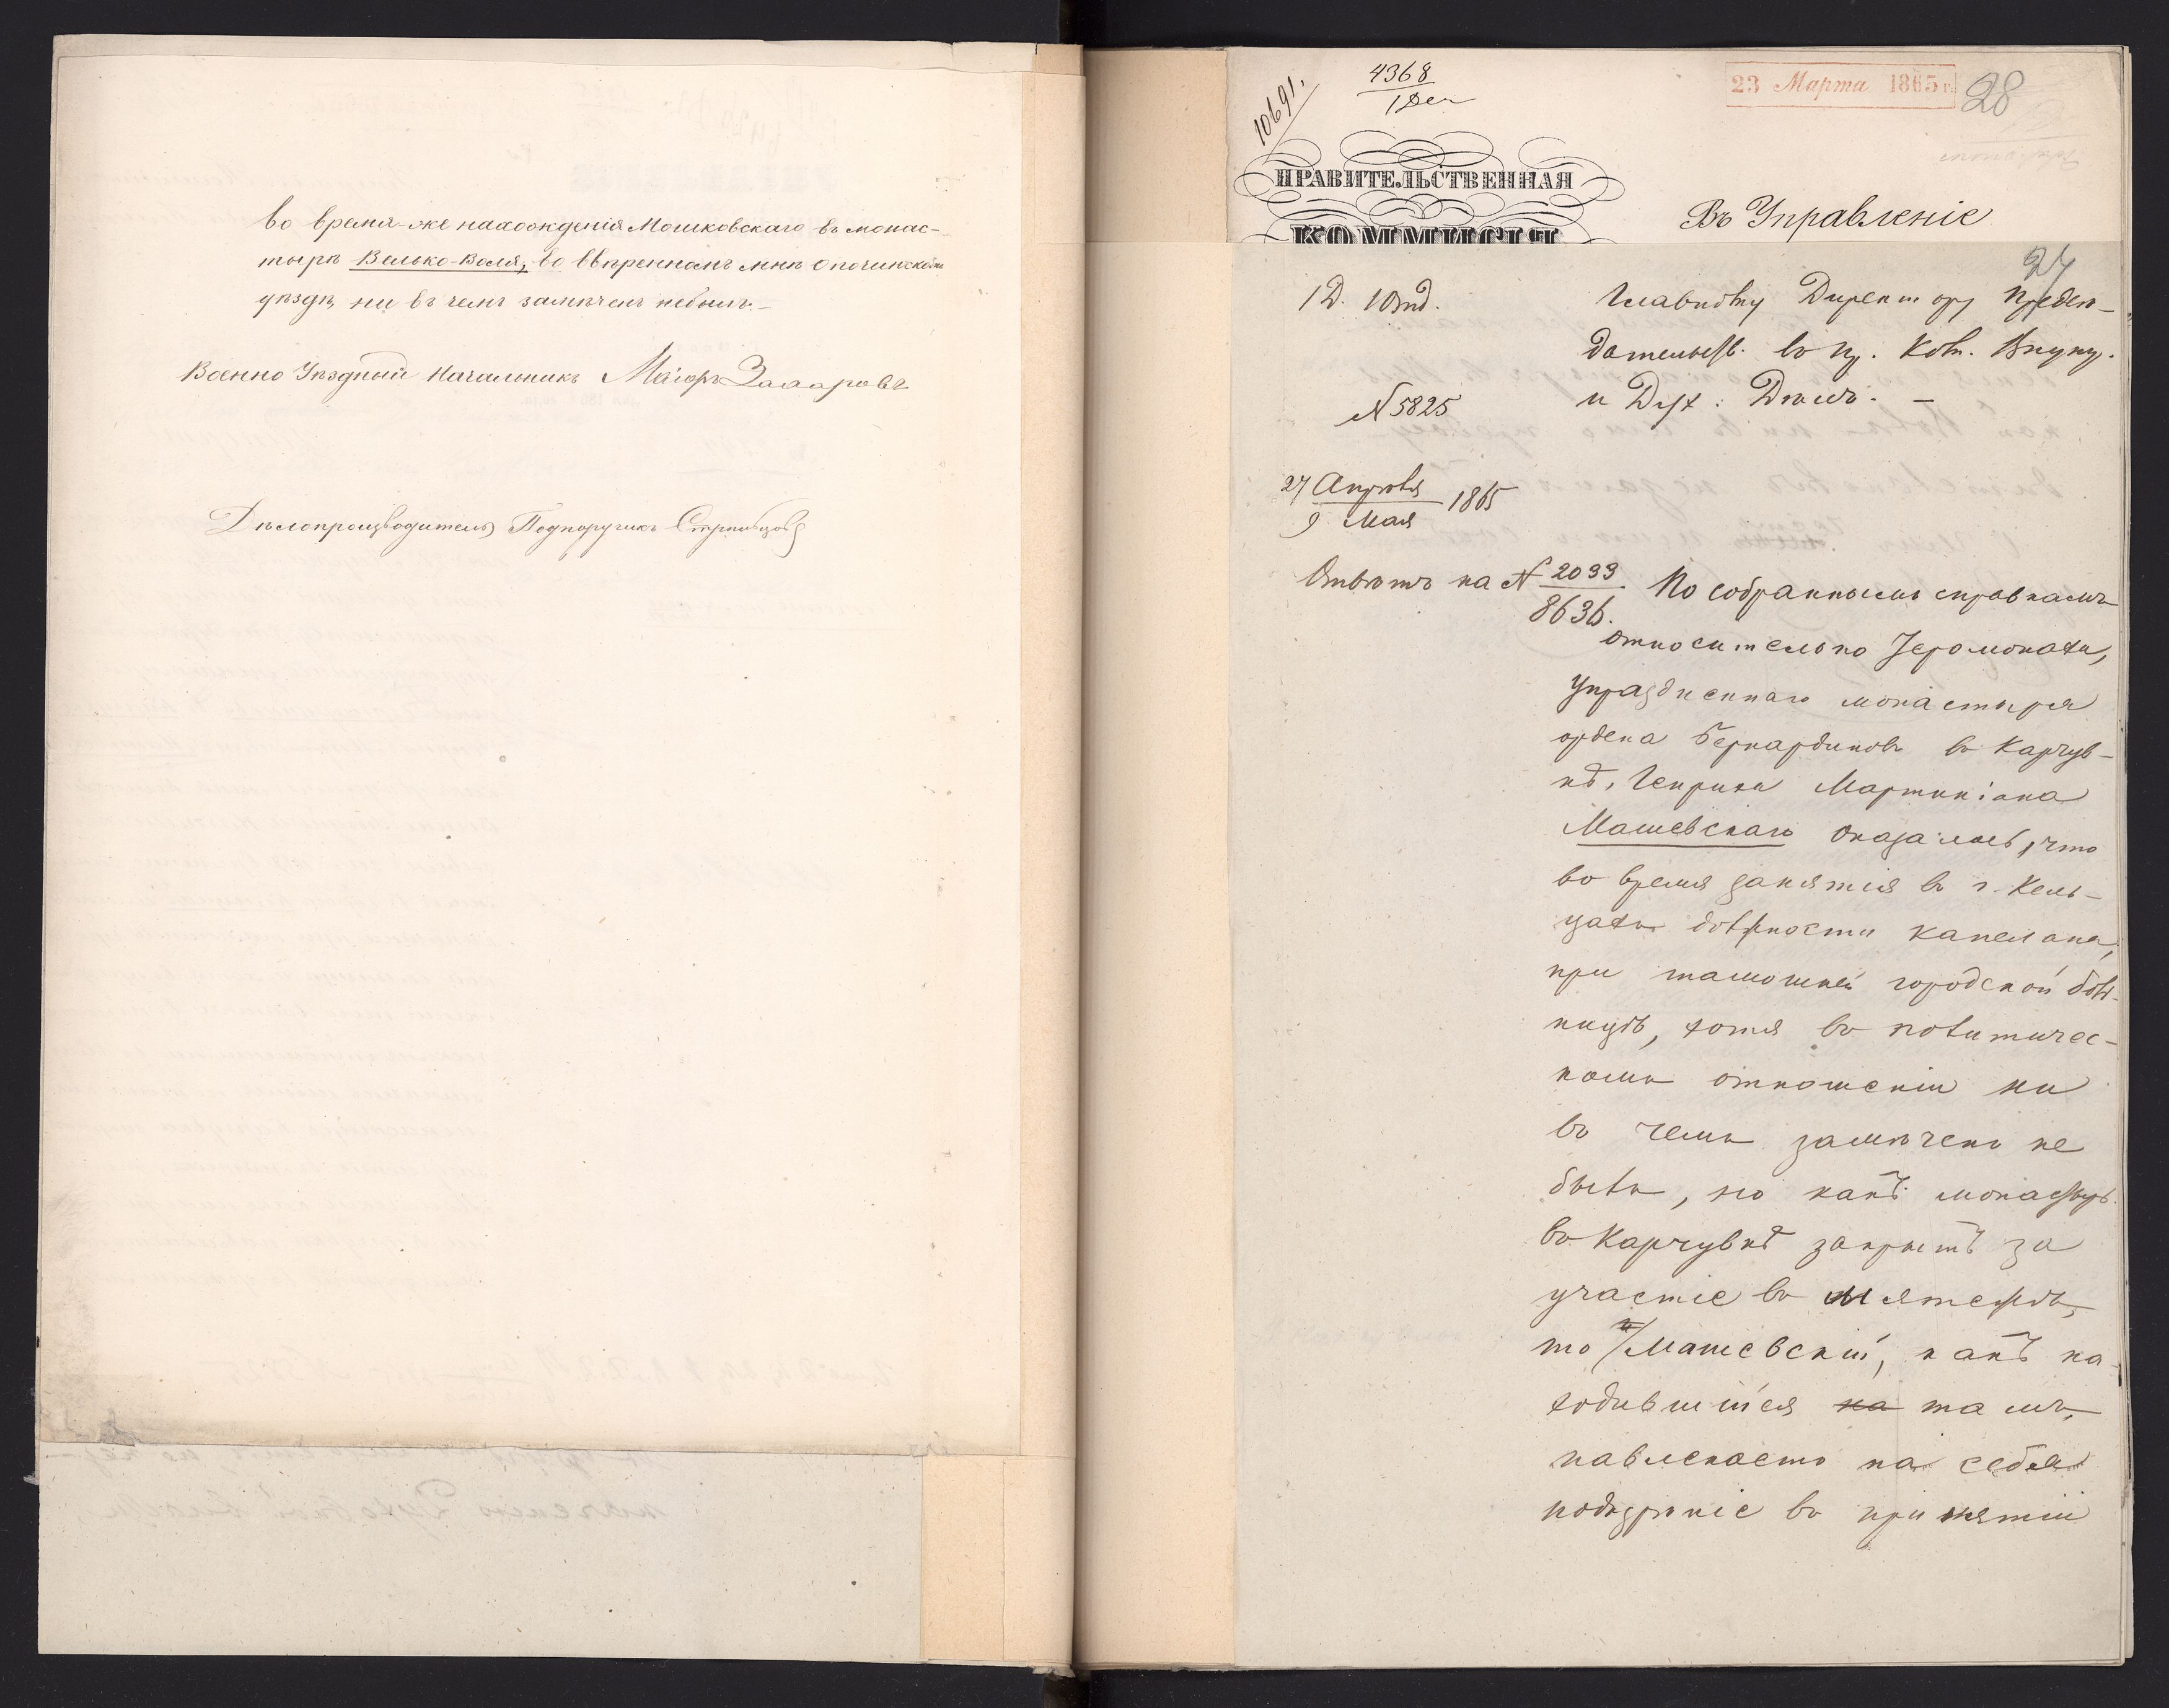 во время-же нахожденія Мошковскаго въ монас-
тырѣ Велько-Воля, во ввѣренномъ мнѣ Опочинскомъ
уѣздѣ, ни въ чемъ замѣченъ небылъ.-
Военно Уѣздный Начальникъ Маіоръ
Дѣлопроизводитель Подпоручикъ
10691.
4368
1 Дек
23 Марта 1865 г.
28
ПРАВИТЕЛЬСТВЕННАЯ
КОММИСІЯ
Въ Управленіе
27
1 Д. 1 Отд.
Главному Директору Предсѣ-
дательств. въ Пр. Ком. Внутр.
и Дух: Дѣлъ. -
N 5825
27 Апрѣля
9 Мая 1865
Отвѣтъ на N 2033
8636.
По собраннымъ справкамъ
относительно Іеромонаха,
упраздненнаго монастыря
ордена Бернардиновъ въ Карчув-
кѣ, Генриха Мартиніана
Машевскаго оказалось, что
во время занятія въ г. Кель-
цахъ должности капелана,
при тамошней городской боль-
ницѣ, хотя въ политичес-
комъ отношеніи ни
въ чемъ замѣченъ не
былъ, но какъ монастырь
въ Карчувкѣ закрытъ за
участіе въ мятежѣ,
то и Машевскій, какъ на-
ходившійся на тамъ,
навлекаетъ на себя
подозрѣніе въ принятіи